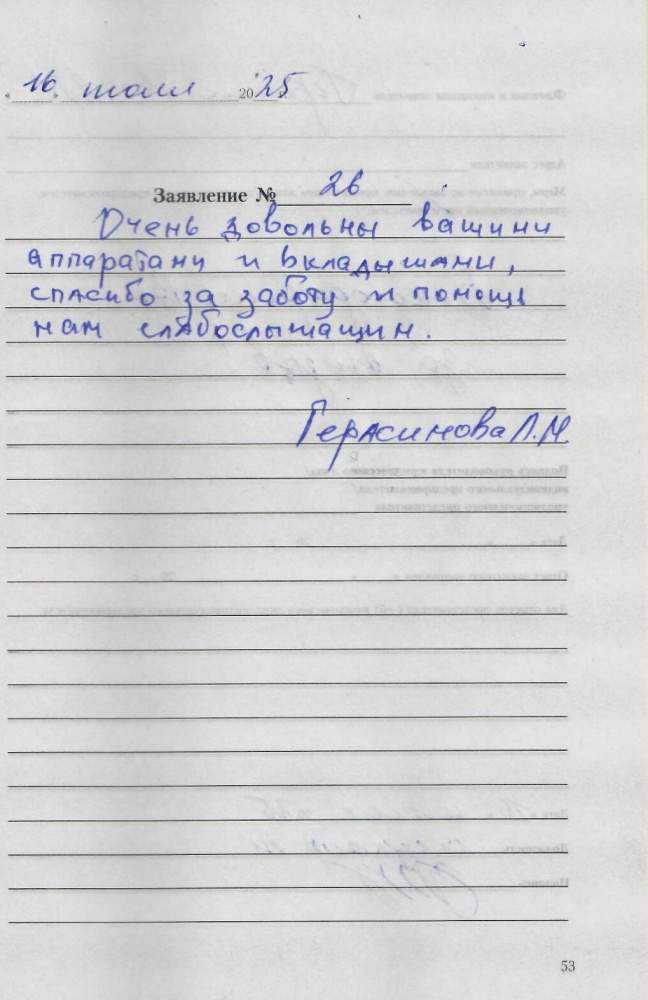 16. июля 2025
Заявление № 26
Очень довольны вашими
аппаратами и вкладышами,
спасибо за заботу и помощь
нам слабослышащим.
Герасимова Л.М.
53